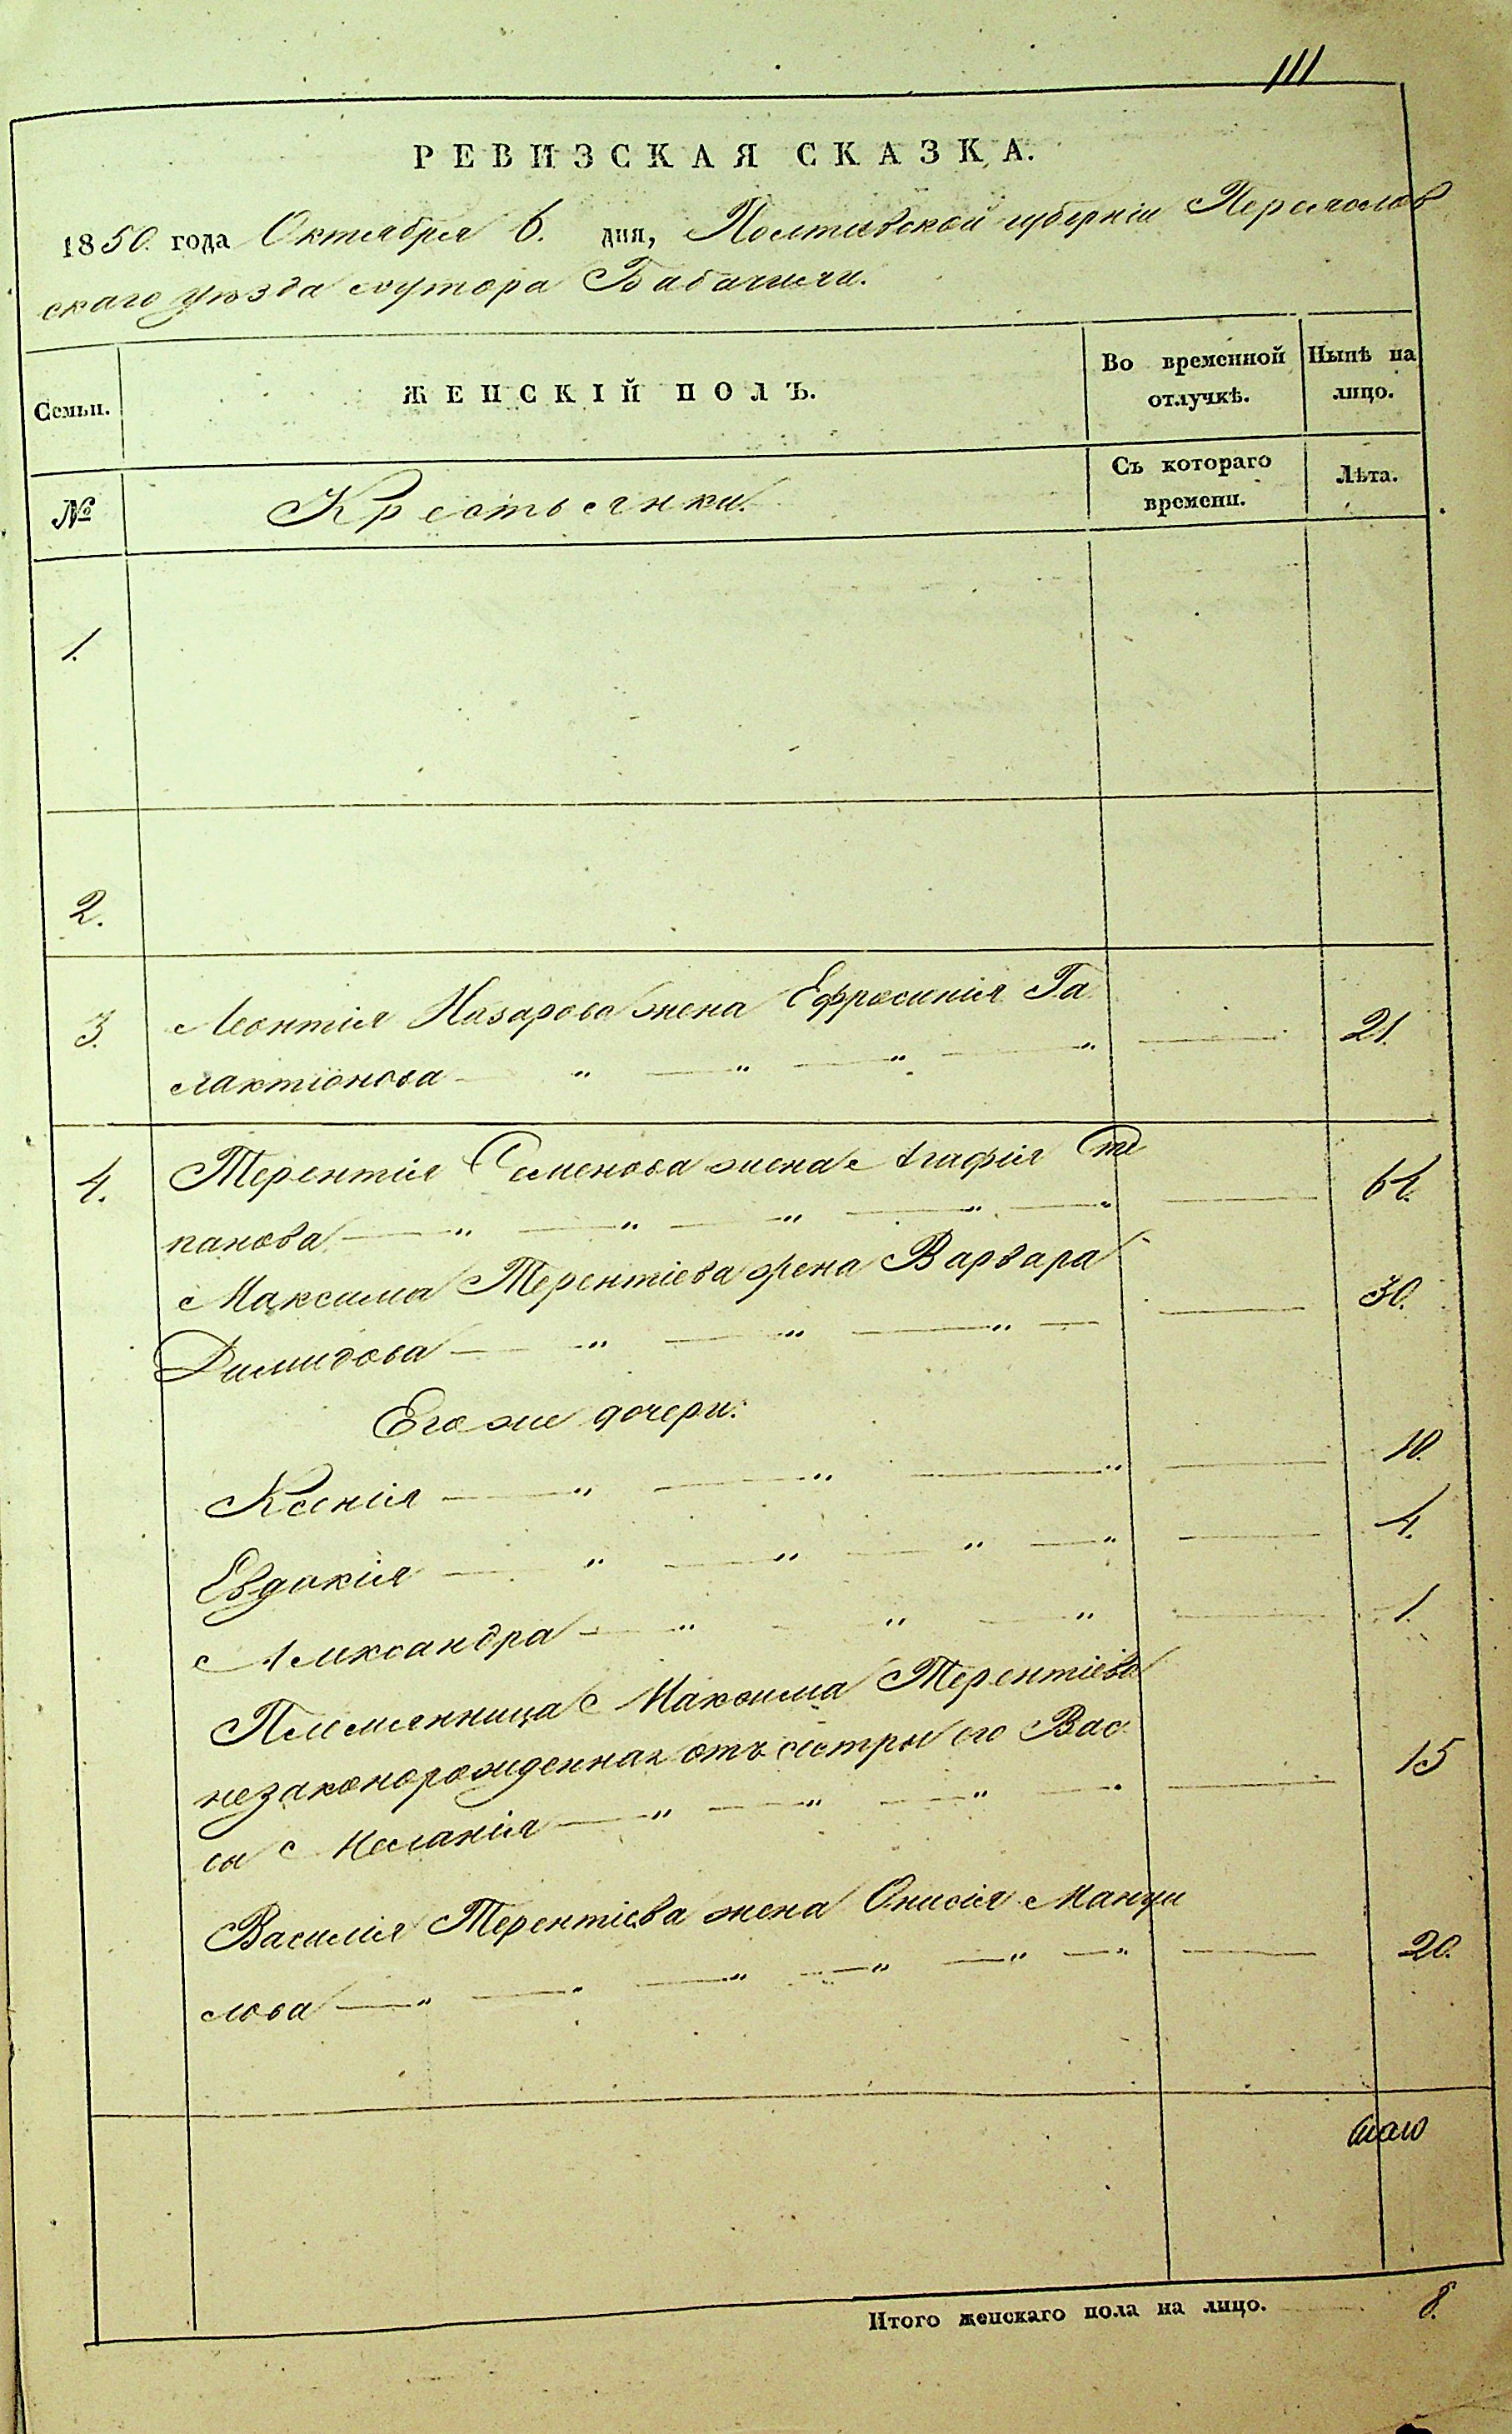 111
РЕВИЗСКАЯ СКАЗКА.
1850. года Октября 6. дня, Полтавской губерніи Переяслов
скаго уѣзда хутора
Семьи. ЖЕНСКІЙ ПОЛЪ. Во временной отлучкѣ. Нынѣ на лицо.
№ Крестьянки. Съ котораго времени. Лѣта.
1.
2.
3. Леонтія Назарова жена Ефросинія Га
лактіонова — " — " — " — " — 21.
4. Терентія Семенова жена Агафія Сте
панова — " — " — " — " — " — 64.
Максима Терентіева жена Варвара
Димидова — " — " — " — — 30.
Его же дочери:
Ксенія — " — " — " — 10.
Евдокія — " — " — " — " — 4.
Александра — " — " — " — 1.
Племянница Максима Терентіева
незаконорожденная отъ сестры его Вас
сы Меланія — " — " — " — " — 15
Василія Терентіева жена Онисія Мануи
лова — " — " — " — " — " — " — 20.
Итого женскаго пола на лицо. 8.